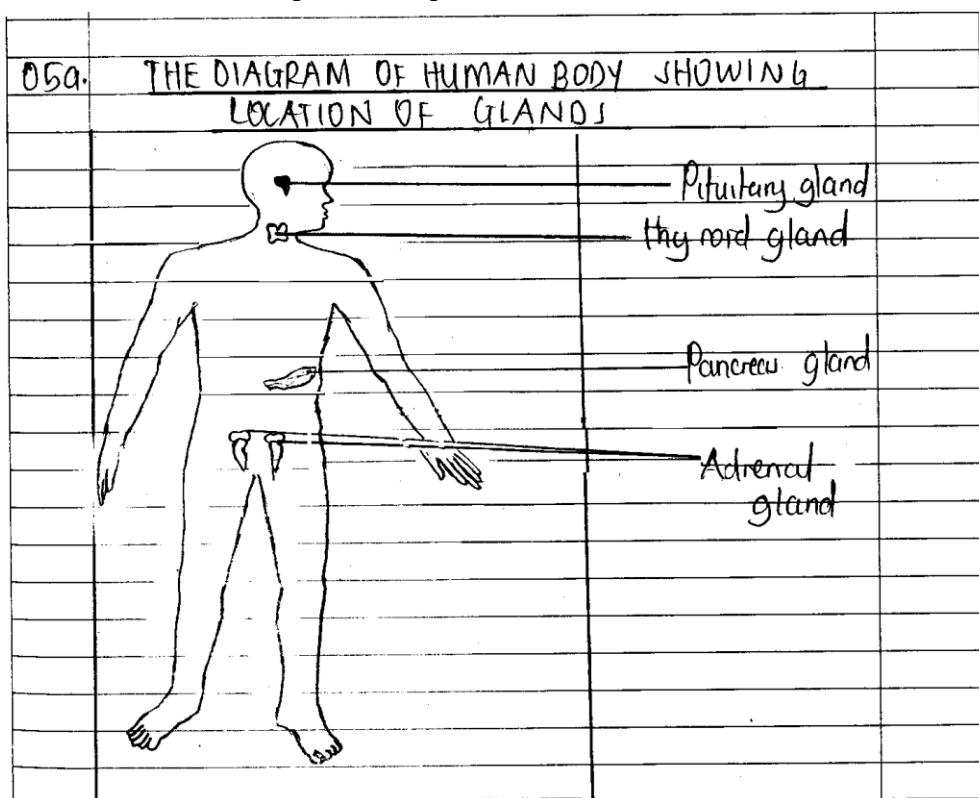 05a. THE DIAGRAM OF HUMAN BODY SHOWING
LOCATION OF GLANDS
Pituitary gland
thyroid gland
Pancreas gland
Adrenal
gland